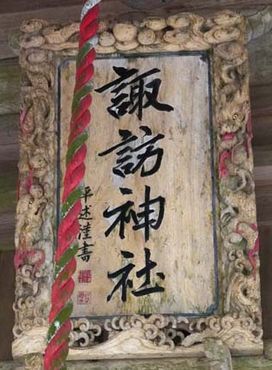 諏訪神社
平述洼書